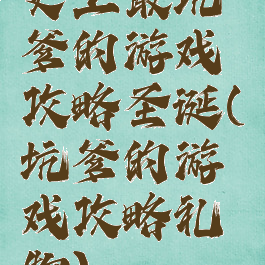 史上最坑
爹的游戏
攻略圣诞(
坑爹的游
戏攻略礼
物)